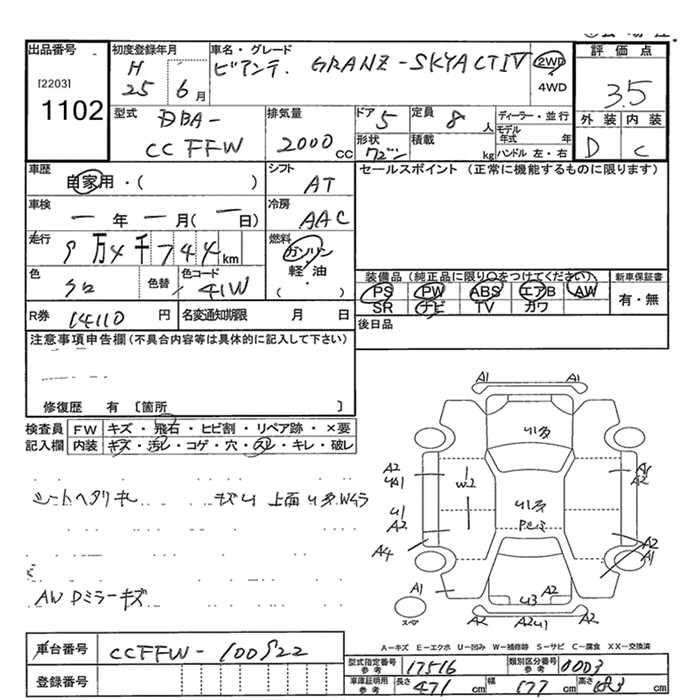 出品番号 初度登録年月 車名・グレード 評価点
[2203] H 25 6月 ビアンテ. GRANZ-SKYACTIV 2WD 4WD 3.5
1102 型式 DBA- CCFFW 排気量 2000cc ドア 5 定員 8人 ディーラー・並行
形状 ワゴン 積載 kg モデル年式 年 ハンドル 左・右 外装 D 内装 C
車歴 自家用・( ) シフト AT セールスポイント (正常に機能するものに限ります)
車検 一年一月(一日) 冷房 AAC
走行 9万4千744km 燃料 ガソリン・軽・油 ( )
装備品 (純正品に限り○をつけてください) 新車保証書
色 色替 色コード 41W PS PW ABS エアB AW 有・無
SR ナビ TV カワ
R券 14110円 名変通知期限 月 日 後日品
注意事項申告欄(不具合内容等は具体的に記入して下さい)
修復歴 有 〔箇所 〕
検査員 FW キズ・飛石・ヒビ割・リペア跡・×要
記入欄 内装 キズ・汚レ・コゲ・穴・スレ・キレ・破レ
シートヘタリ キズU 上面U多
AW Dミラーキズ
A1 A1
U多
A2 UA1 W2 A1 A2
U1 A2 U多
A4 A2 A1
A1 U3 A2
スペア A2 A2U1 A2
A−キズ E−エクボ U−凹み W−補修跡 S−サビ C−腐食 XX−交換済
車台番号 CCFFW-100922
登録番号
型式指定番号 参考 17516 類別区分番号 参考 0003
車庫証明用 参考 長さ 471cm 幅 177cm 高さ 183cm